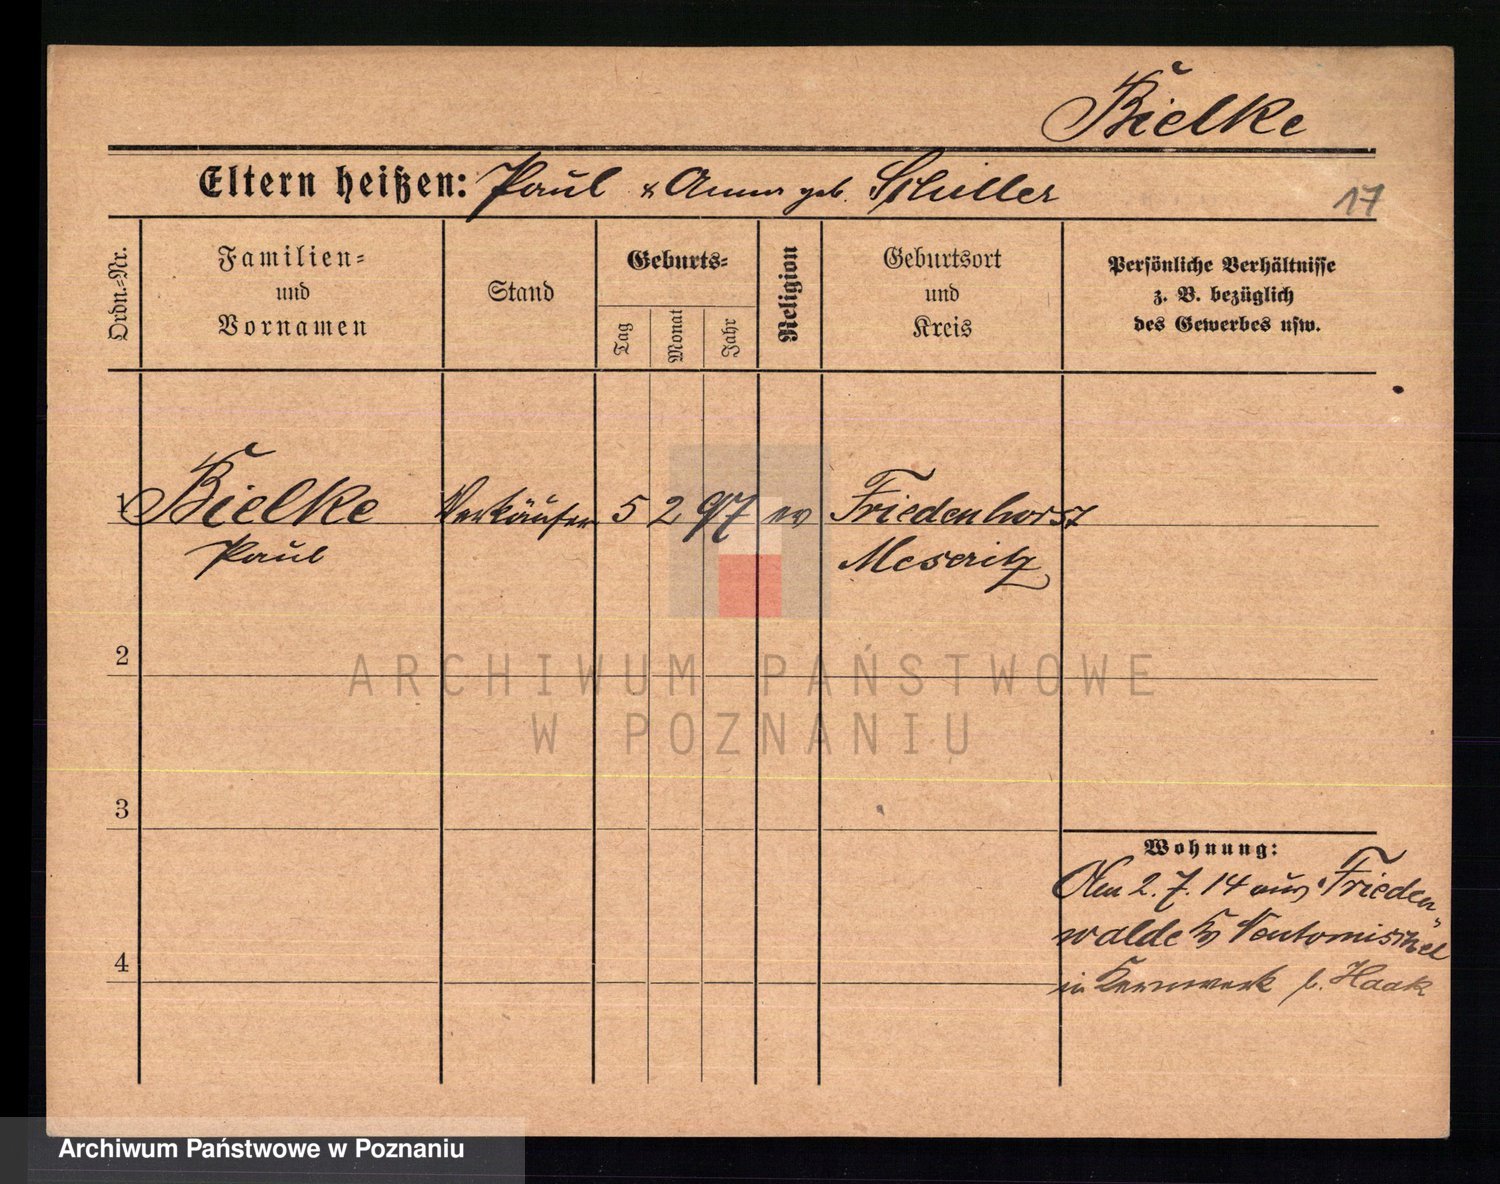 Bielke
Eltern heißen: Paul & Anna geb. Schiller
17
Ordn.=Nr.
Familien=
und
Vornamen
Stand
Geburts=
Tag
Monat
Jahr
Religion
Geburtsort
und
Kreis
Persönliche Verhältnisse
z. B. bezüglich
des Gewerbes usw.
1 Bielke Verkäufer 5 2 97 ev Friedenhorst
Paul Meseritz
2
ARCHIWUM PAŃSTWOWE
W POZNANIU
3
Wohnung:
2. 7. 14 aus Frieden=
walde Neutomischel
4
in Kernwerk b. Haak
Archiwum Państwowe w Poznaniu